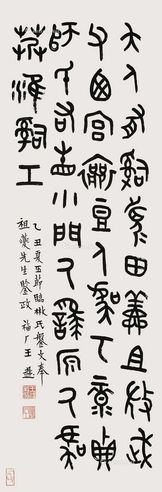 矢人有嗣眉田鮮且散武
父西宮襄豆人虞丂彔貞
師氏右眚小門人繇原人虞
艿淮嗣工
乙丑夏五節臨散氏盤文奉
祖夔先生鑒政 福厂王禔